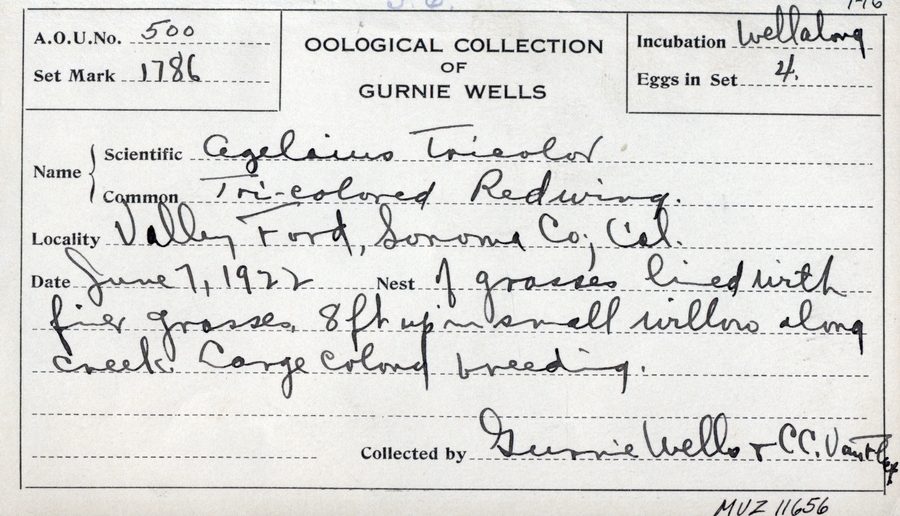 A.O.U.No. 500
Set Mark 1786
OOLOGICAL COLLECTION
OF
GURNIE WELLS
Incubation Wellalong
Eggs in Set 4.
Name
Scientific Agelaius Tricolor
Common Tri-colored Redwing.
Locality Valley Ford, Sonoma Co; Cal.
Date June 7, 1922 Nest of grasses lined with
finer grasses. 8 ft up in small willow along
creek. Large colony breeding.
Collected by Gurnie Wells & C.C. Van
MVZ 11656